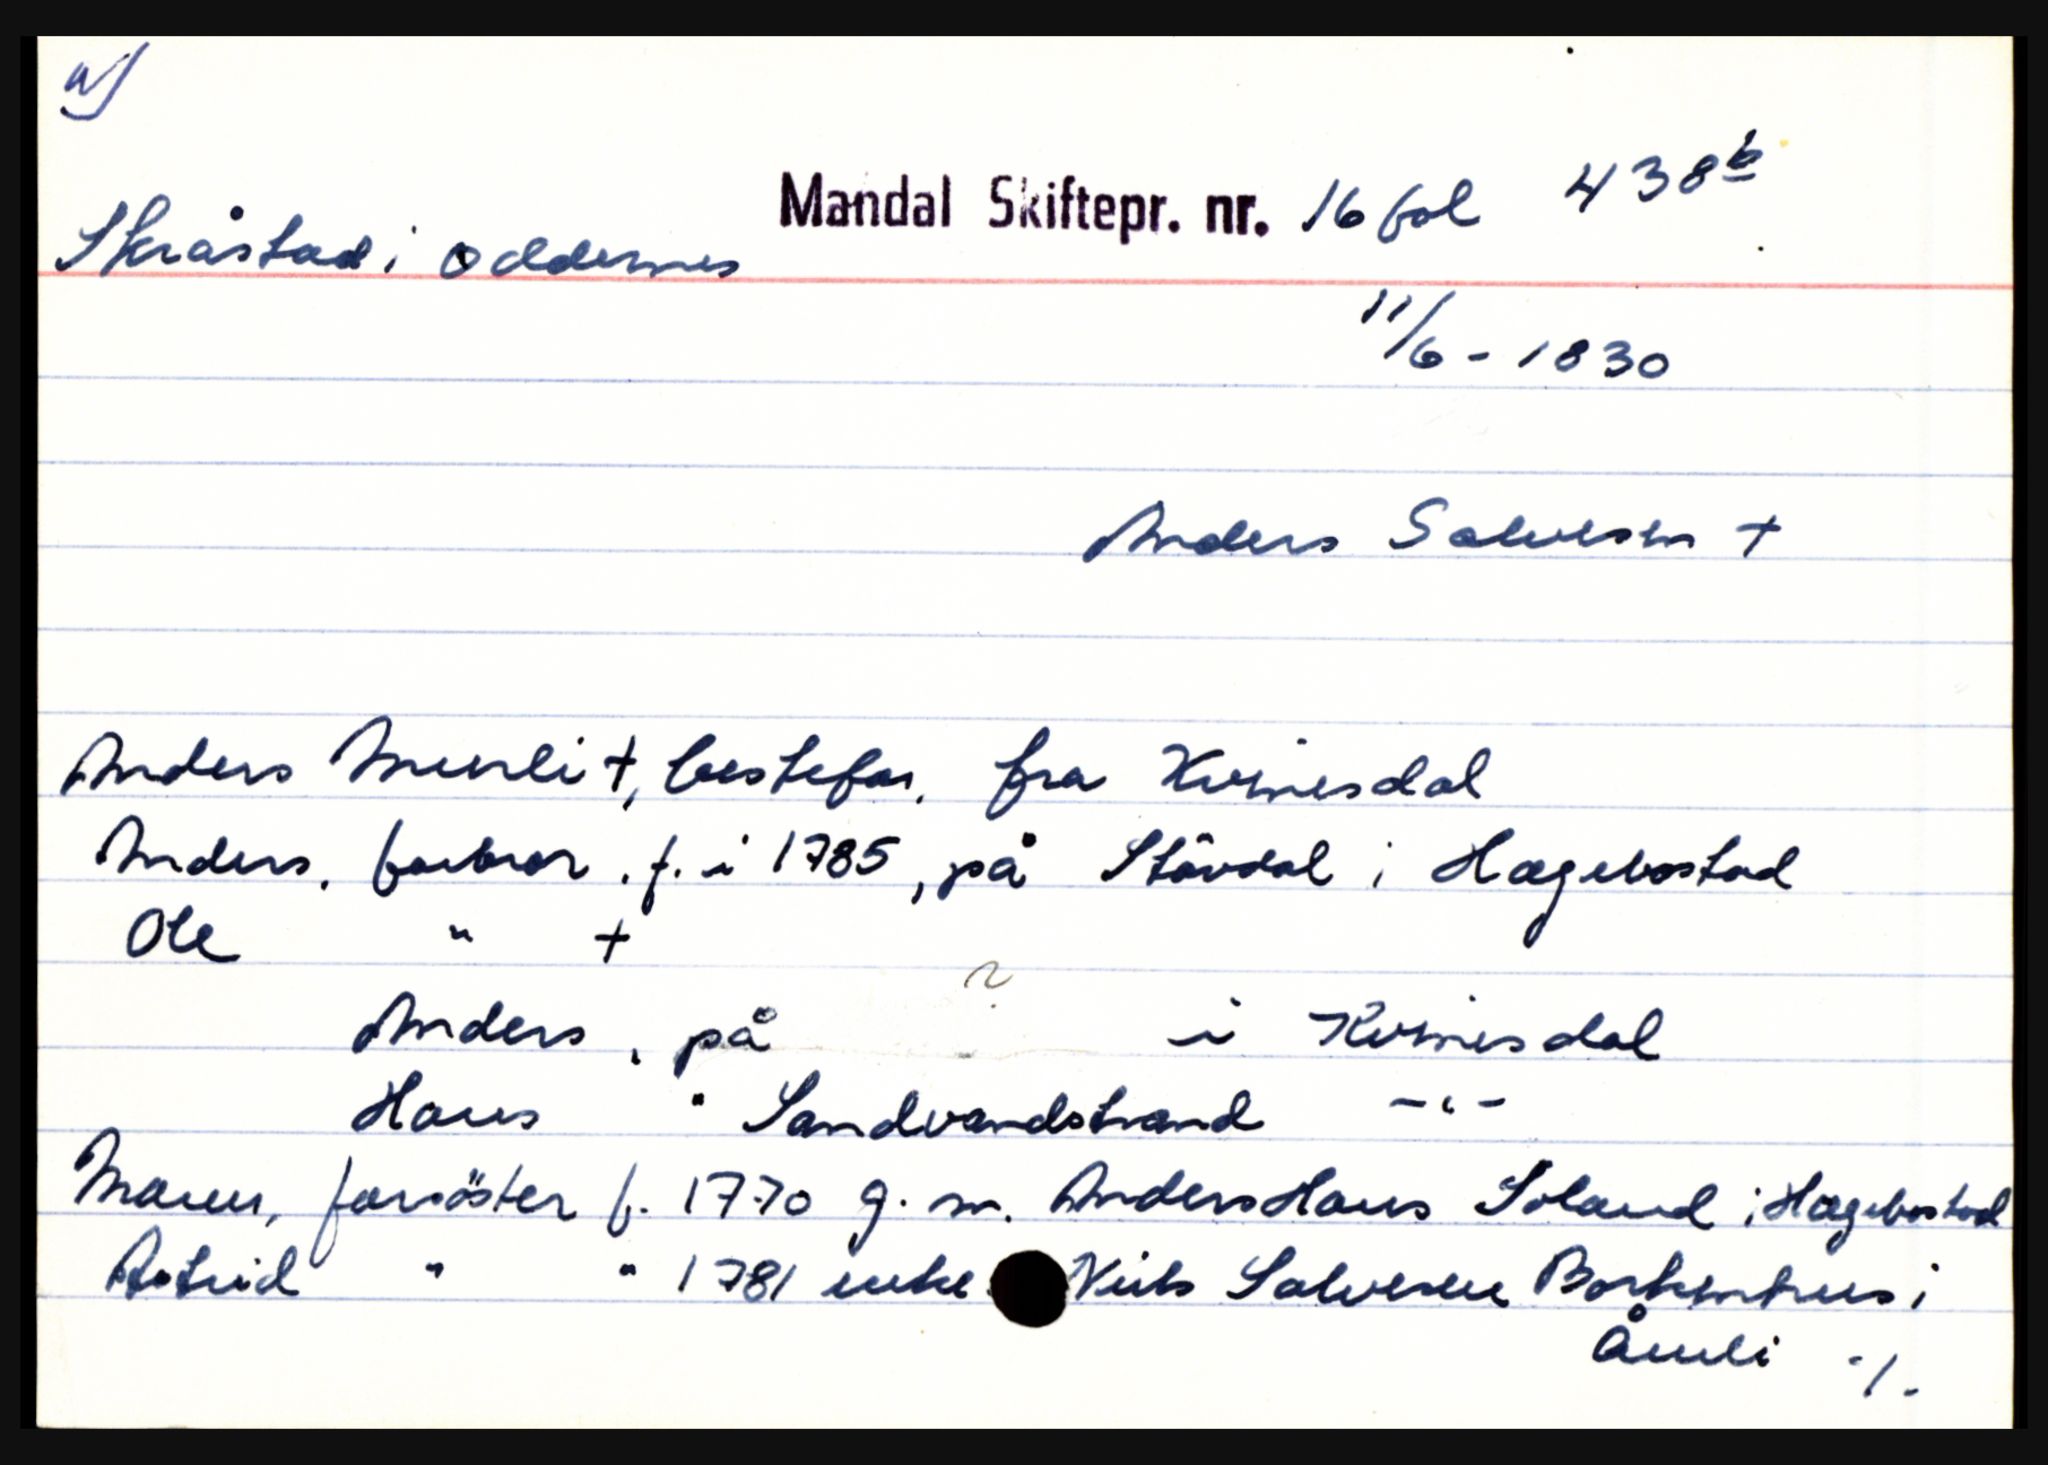 a)
Mandal Skiftepr. nr. 16 fol 438b
Skråstad i Oddernes
11/6 - 1830
Anders Salvesen +
Anders +, bestefar, fra Kvinesdal
Anders, farbror, f. i 1785, på Stövdal i Hægebostad
Ole " +
?
Anders, på i Kvinesdal
Hans " Sandvandstrand -"-
Maren, farsöster f. 1770 g. m. Anders Hans Soland i Hægebostad
Astrid " " 1781 enke Niels Salvesen Borkenhus i
Åmli ./.